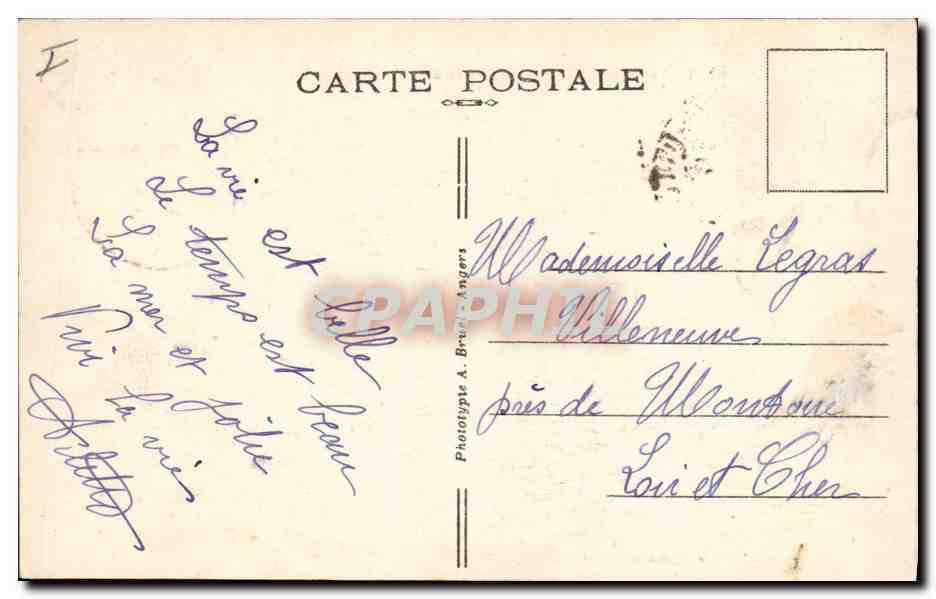 I
CARTE POSTALE
La vie est belle
Le temps est beau
La mer et jolie
Vive la vie
Phototypie A. Bruel - Angers
Mademoiselle Legras
Villeneuve
près de
Loir et Cher
SPAPHIL